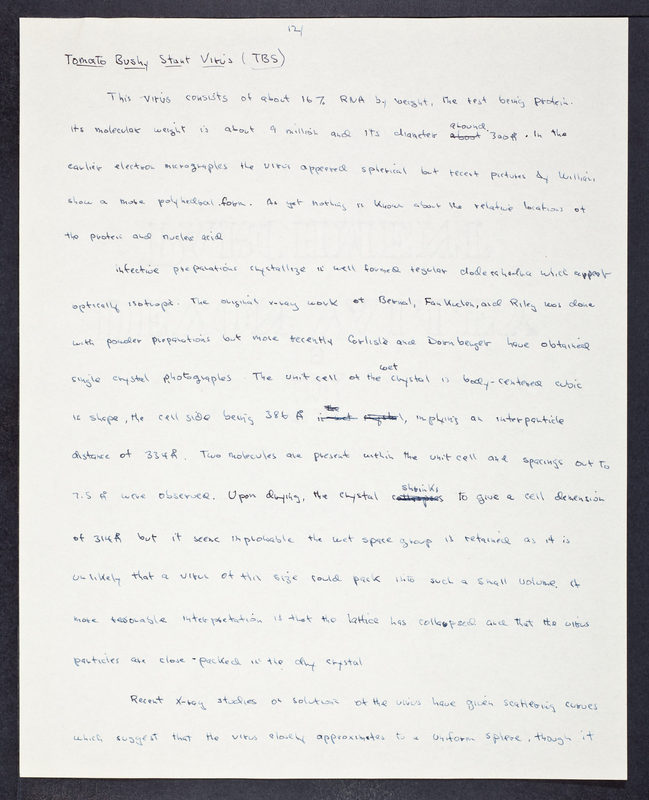 12/
Tomato Bushy Stunt Virus (TBS)
This virus consists of about 16% RNA by weight, the rest being protein.
Its molecular weight is about 9 million and its diameter about around 300Å. In the
earlier electron micrographs the virus appeared spherical but recent pictures by Williams
show a more polyhedral form. As yet nothing is known about the relative locations of
the protein and nucleic acid
Infective preparations crystallize in well formed regular dodecahedra which appear
optically isotropic. The original x-ray work of Bernal, Fankuchen, and Riley was done
with powder preparations but more recently Carlisle and Dornberger have obtained
single crystal photographs. The unit cell of the wet crystal is body-centered cubic
in shape, the cell side being 386 Å, implying an interparticle
distance of 334Å. Two molecules are present within the unit cell and spacings out to
7.5 Å were observed. Upon drying, the crystal collapses shrinks to give a cell dimension
of 314Å but it seems improbable the wet space group is retained as it is
unlikely that a virus of this size could pack into such a small volume. A
more reasonable interpretation is that the lattice has collapsed and that the virus
particles are close-packed in the dry crystal
Recent X-ray studies on solutions of the virus have given scattering curves
which suggest that the virus closely approximates to a uniform sphere, though it